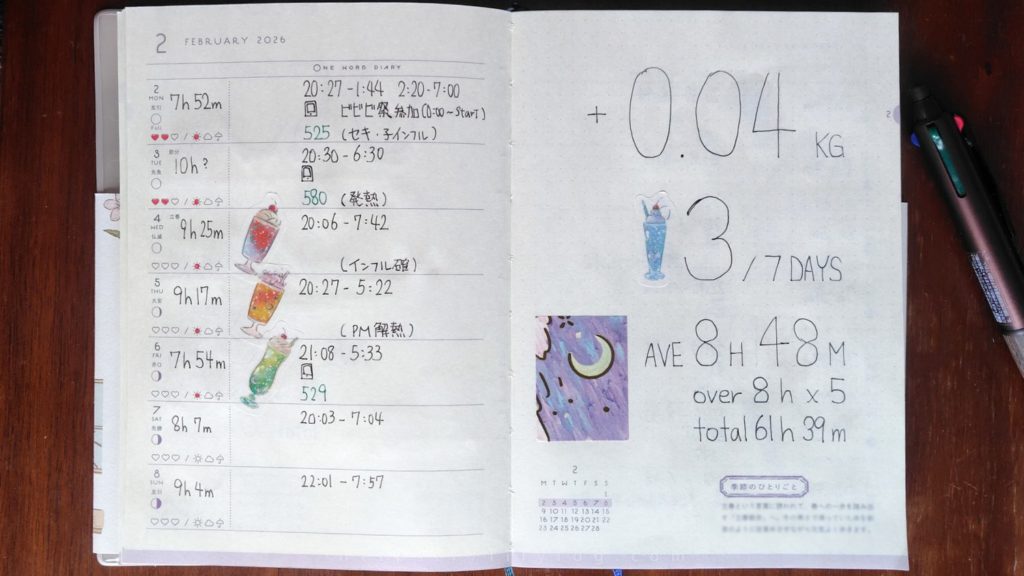 2 FEBRUARY 2026
ONE WORD DIARY
2 MON 7h 52m
20:27-1:44 2:20-7:00
ビビビ祭 参加(0:00~start)
525 (セキ・子インフル)
3 TUE 節分 10h?
20:30-6:30
580 (発熱)
4 WED 立春 9h 25m
20:06-7:42
(インフル確)
5 THU 9h 17m
20:27-5:22
(PM解熱)
6 FRI 7h 54m
21:08-5:33
529
7 SAT 8h 7m
20:03-7:04
8 SUN 9h 4m
22:01-7:57
+0.04 KG
3/7 DAYS
AVE 8H 48M
over 8h x 5
total 61h 39m
2
M T W T F S S
1
2 3 4 5 6 7 8
9 10 11 12 13 14 15
16 17 18 19 20 21 22
23 24 25 26 27 28
季節のひとりごと